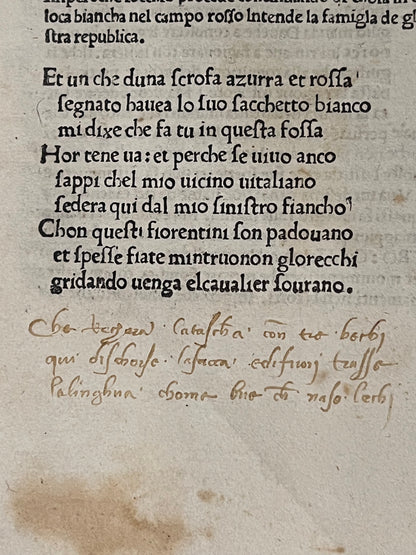 loca biancha nel campo rosso Intende la famigla de
stra republica.
Et un che duna scrofa azurra et rossa
segnato hauea lo suo sacchetto bianco
mi dixe che fa tu in questa fossa
Hor tene ua: et perche se uiuo anco
sappi chel mio uicino uitaliano
sedera qui dal mio sinistro fiancho
Chon questi fiorentini son padouano
et spesse fiate mintruonon glorecchi
gridando uenga elcaualier sourano.
Che con tre bechi
qui la edifuori trasse
lalinghua chome bue naso lechi